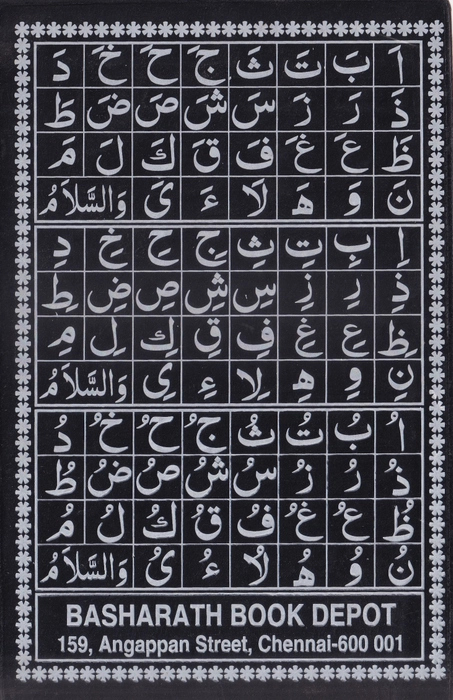 اَ بَ تَ ثَ جَ حَ خَ دَ
ذَ رَ زَ سَ شَ صَ ضَ طَ
ظَ عَ غَ فَ قَ كَ لَ مَ
نَ وَ هَ لَا ءَ یَ وَالسَّلَامُ
اِ بِ تِ ثِ جِ حِ خِ دِ
ذِ رِ زِ سِ شِ صِ ضِ طِ
ظِ عِ غِ فِ قِ كِ لِ مِ
نِ وِ هِ لِا ءِ یِ وَالسَّلَامُ
اُ بُ تُ ثُ جُ حُ خُ دُ
ذُ رُ زُ سُ شُ صُ ضُ طُ
ظُ عُ غُ فُ قُ كُ لُ مُ
نُ وُ هُ لُا ءُ یُ وَالسَّلَامُ
BASHARATH BOOK DEPOT
159, Angappan Street, Chennai-600 001